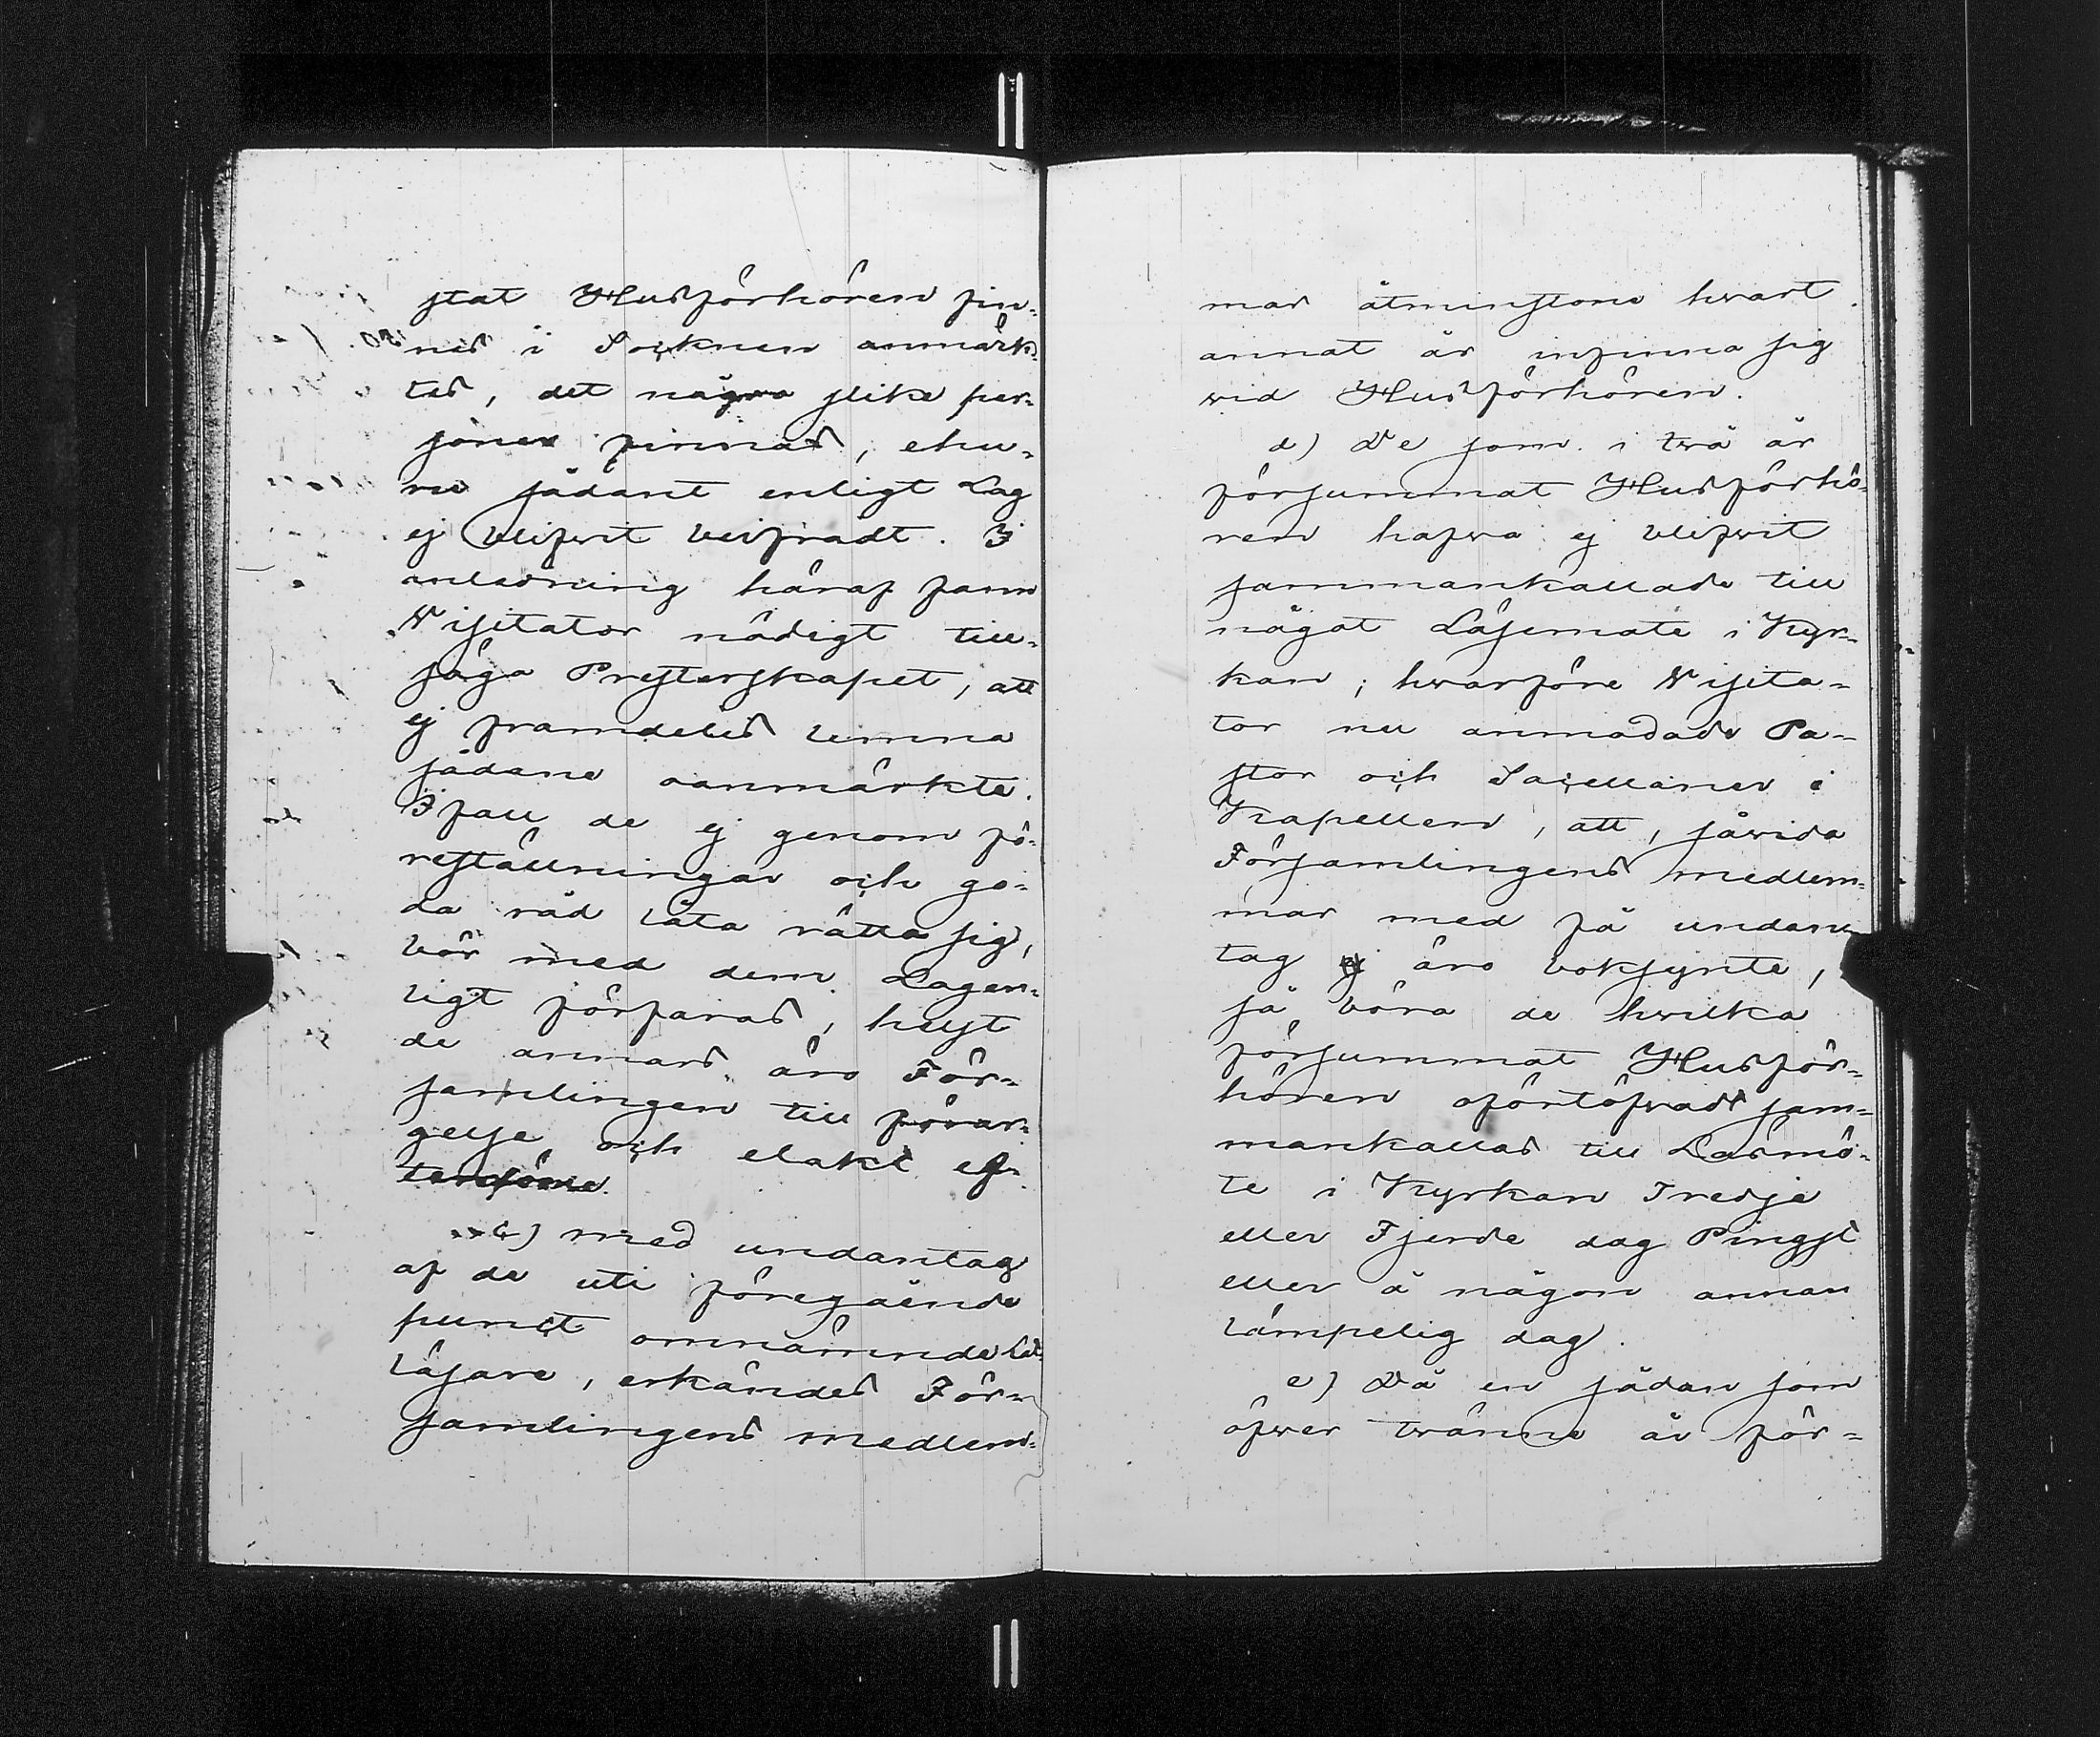 stat Husförhören fin-
nas i Socknen anmärk-
tes, det några slike per-
soner finnas, ehu-
ru sådant enligt Lag
ej blifvit beifradt. I
anledning häraf fann
Visitator nödigt till-
säga Presterskapet, att
ej framdeles lemna
sådane oanmärkte.
Ifall de ej genom fö-
reställningar och go-
da råd låta rätta sig,
bör med dem Lagen-
ligt förfaras, helst
de annars äro För-
samlingen till förar-
gelse och elakt ef-
terdöme.
c) med undantag
af de uti föregående
punct omnämnde Lät-
läsare, erkändes För-
samlingens medlem-
mar åtminstone hvart
annat år infinna sig
wid Husförhören.
d) De som i twå år
försummat Husförhö-
ren hafwa ej blifwit
sammankallade till
något Läsemöte i Kyr-
kan; hwarföre Visita-
tor nu anmodade Pa-
stor och Sacellaner i
Kapellen, att, såwida
Församlingens medlem-
mar med få undan-
tag ej äro boksynte,
så böra de hwilka
försummat Husför-
hören ofördröfwadt sam-
mankallas till Läsmö-
te i Kyrkan Tredje
eller Fjerde dag Pingst
eller å någon annan
lämpelig dag.
e) Då en sådan som
öfwer twänne år för-